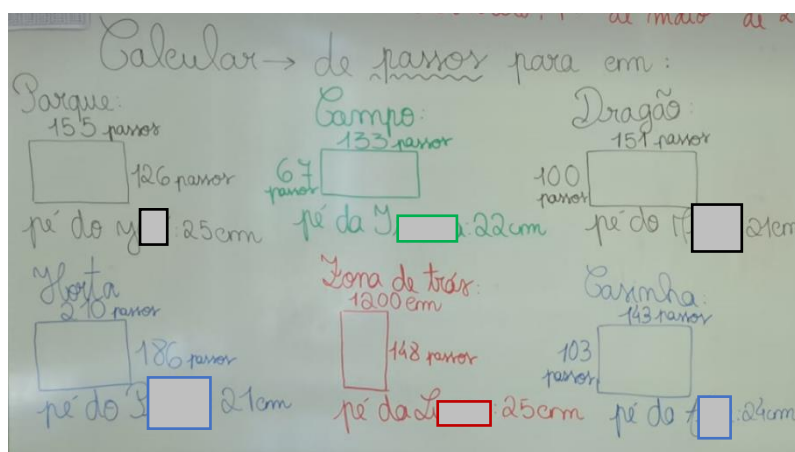 de maio de 2
Calcular → de passos para cm:
Parque:
155 passos
126 passos
pé do : 25cm
Campo:
133 passos
67 passos
pé da : 22cm
Dragão:
151 passos
100 passos
pé do 21cm
Horta
210 passos
186 passos
pé do 21cm
Zona de trás:
1200 cm
148 passos
pé da : 25cm
Casinha:
143 passos
103 passos
pé da : 24cm